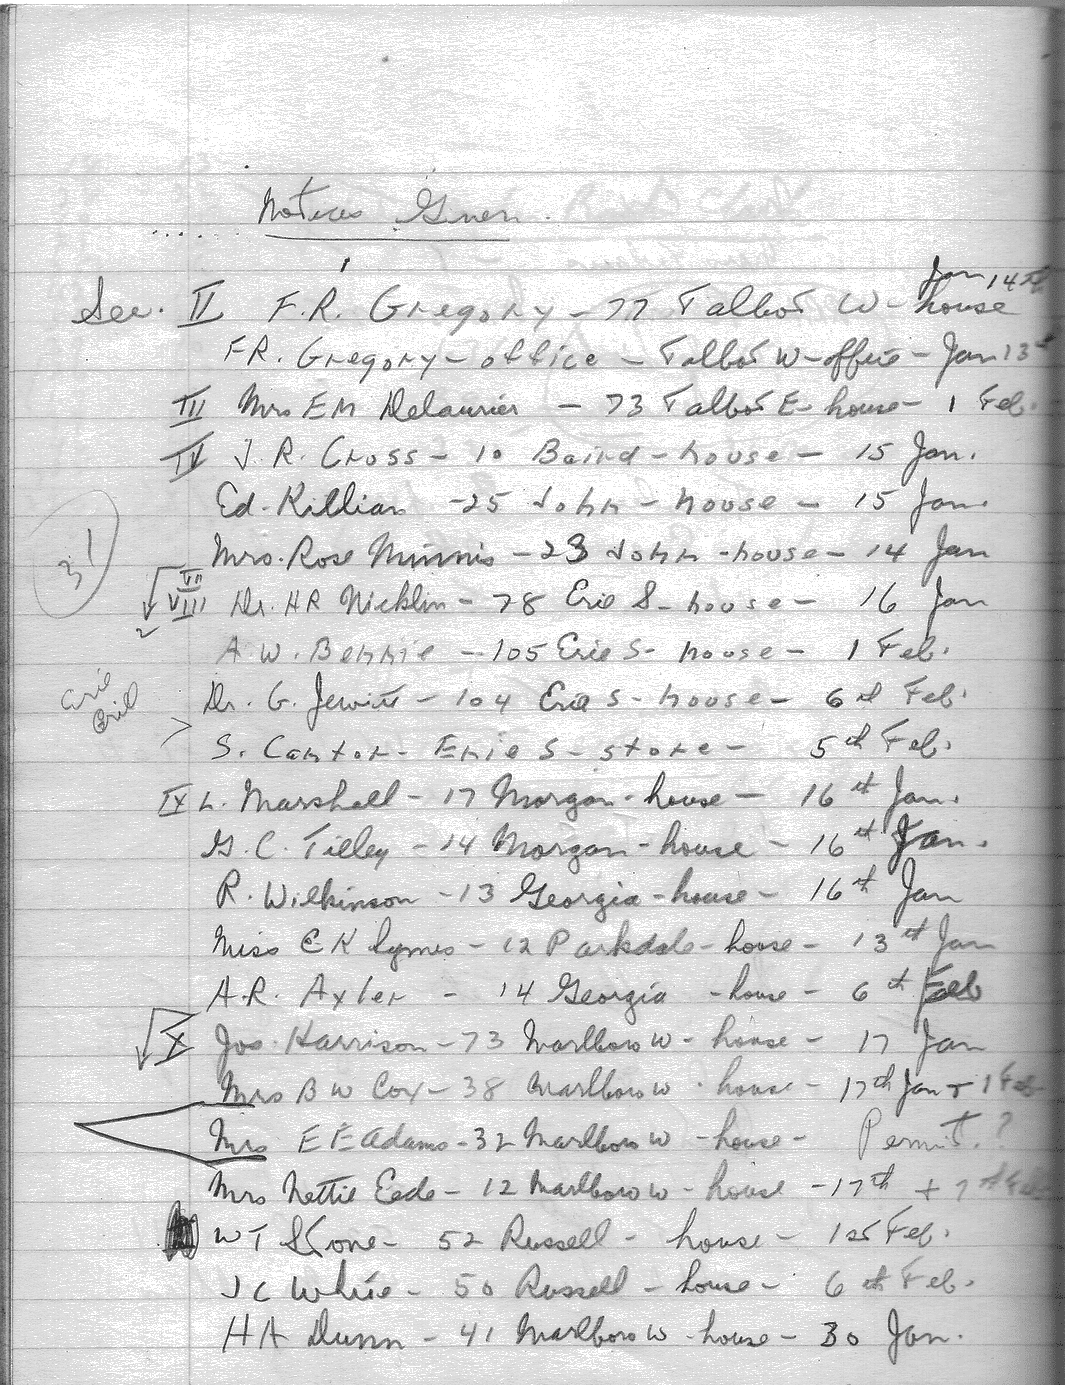 Notices Given.
Jan 14th
Sec. II F.R. Gregory - 77 Talbot W - house
F.R. Gregory - office - Talbot W - office - Jan 13th
III Mrs EM Delaurier - 73 Talbot E - house - 1 Feb.
IV J.R. Cross - 10 Baird - house - 15 Jan.
Ed. Killian - 25 John - house - 15 Jan.
31
Mrs. Rose Minnis - 23 John - house - 14 Jan
VII
VIII Dr. HR Nicklin - 78 Erie S - house - 16 Jan
2
A W. Bennie - 105 Erie S - house - 1 Feb.
Erie
Dr. G. Jewitt - 104 Erie S - house - 6th Feb.
S. Cantor - Erie S - store - 5th Feb.
IX L. Marshall - 17 Morgan - house - 16th Jan.
G. C. Tilley - 14 Morgan - house - 16th Jan.
R. Wilkinson - 13 Georgia - house - 16th Jan
Miss E K Symes - 12 Parkdale - house - 13th Jan
A.R. Axler - 14 Georgia - house - 6th Feb
X Jos. Harrison - 73 Marlboro W - house - 17 Jan
Mrs B W Cox - 38 Marlboro W - house - 17th Jan + 1 Feb
Mrs E E Adams - 32 Marlboro W - house - Permit.?
Mrs Nettie Ede - 12 Marlboro W - house - 17th + 7th Feb
W T Stone - 52 Russell - house - 1st Feb.
J C White - 50 Russell - house - 6th Feb.
H A Dunn - 41 Marlboro W - house - 30 Jan.